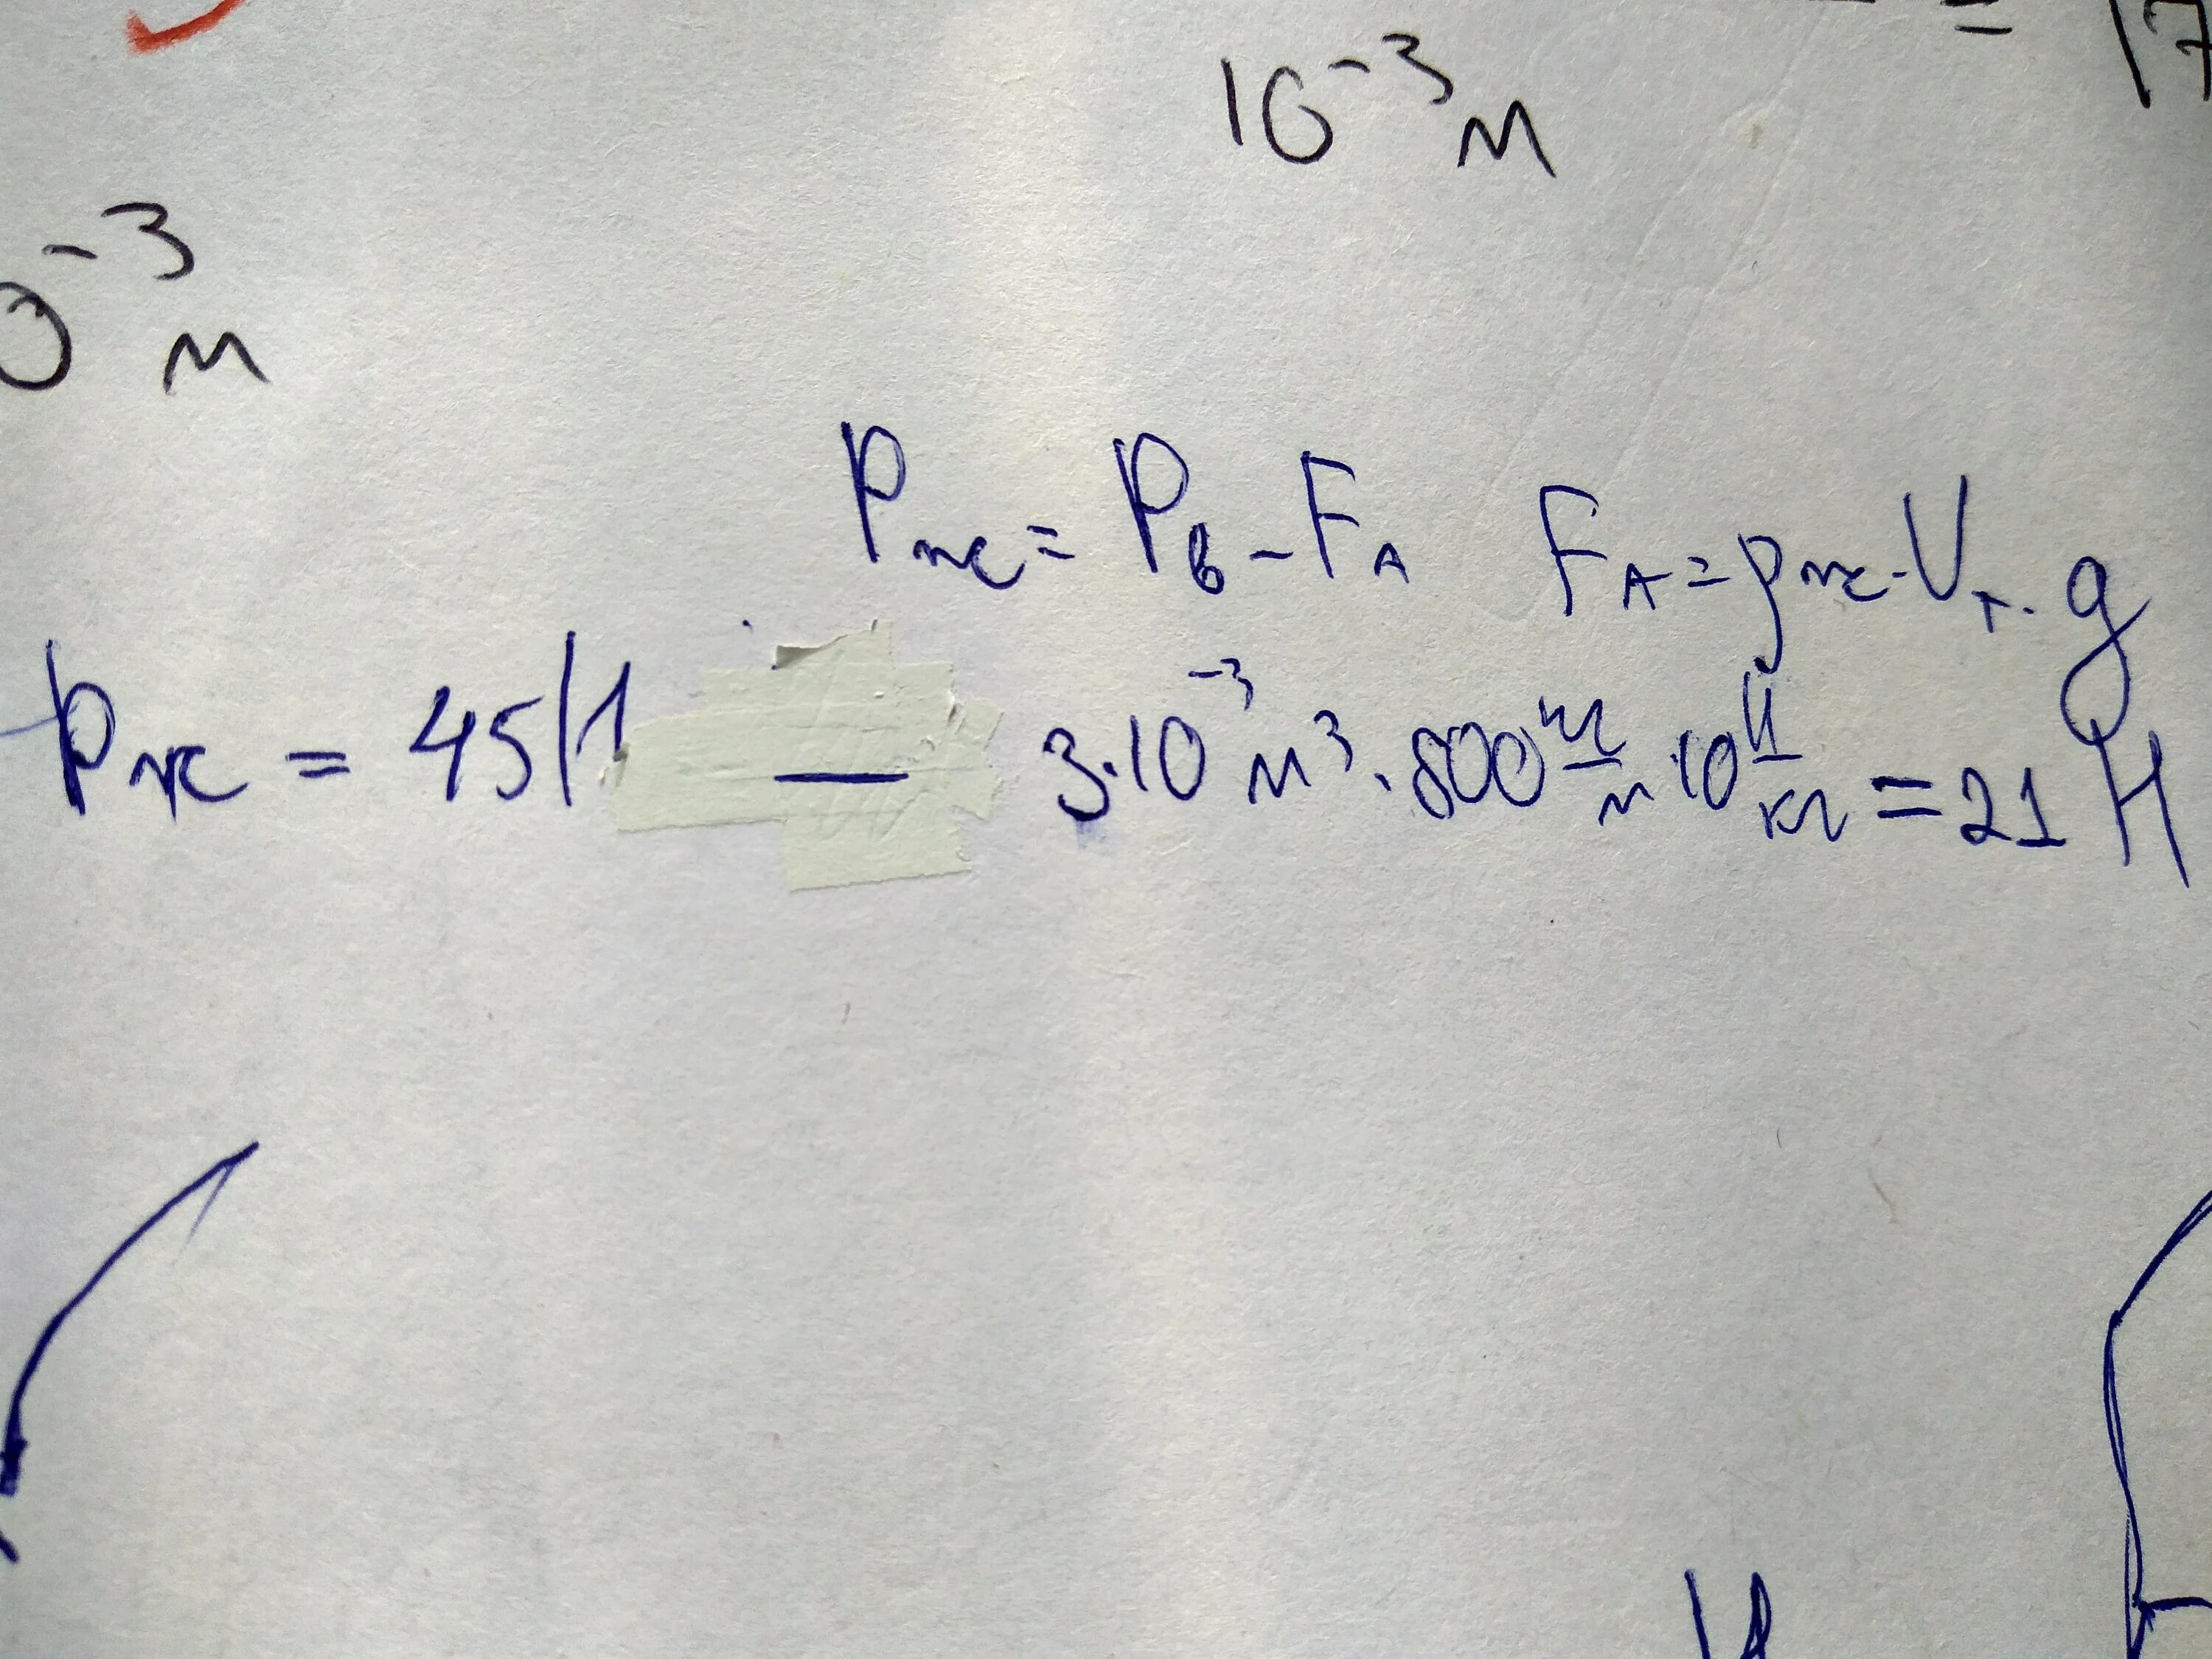 = 17
10⁻³ м
0⁻³ м
Pж = Pв - FA FA = ρж · Vт · g
Pж = 45 Н — 3·10⁻³ м³ · 800 кг/м · 10 Н/кг = 21 Н